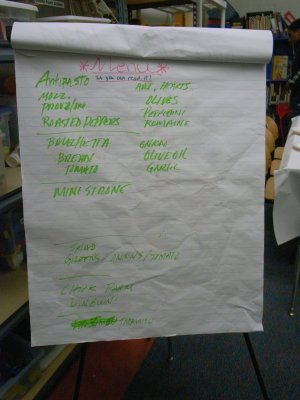 *Menu*
If you can read it!
Antipasto
Mozz.
Provolom
Roasted Peppers
Art. Hearts
Olives
Pepperoni
Romaine
Bruschetta
Bread
Tomato
Onion
Olive Oil
Garlic
Minestrone
Salad
Greens / Onions / Tomato
Chick Parm
Linguini
Tiramisu